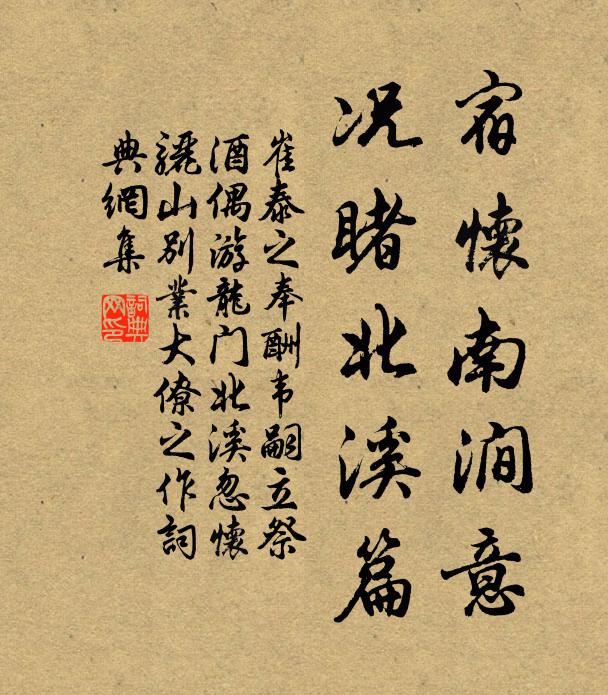 宿懷南澗意
况睹北溪篇
崔泰之奉酬韦嗣立祭
酒偶游龍门北溪忽懷
驪山别業大僚之作詞
典網集
詞典
网印